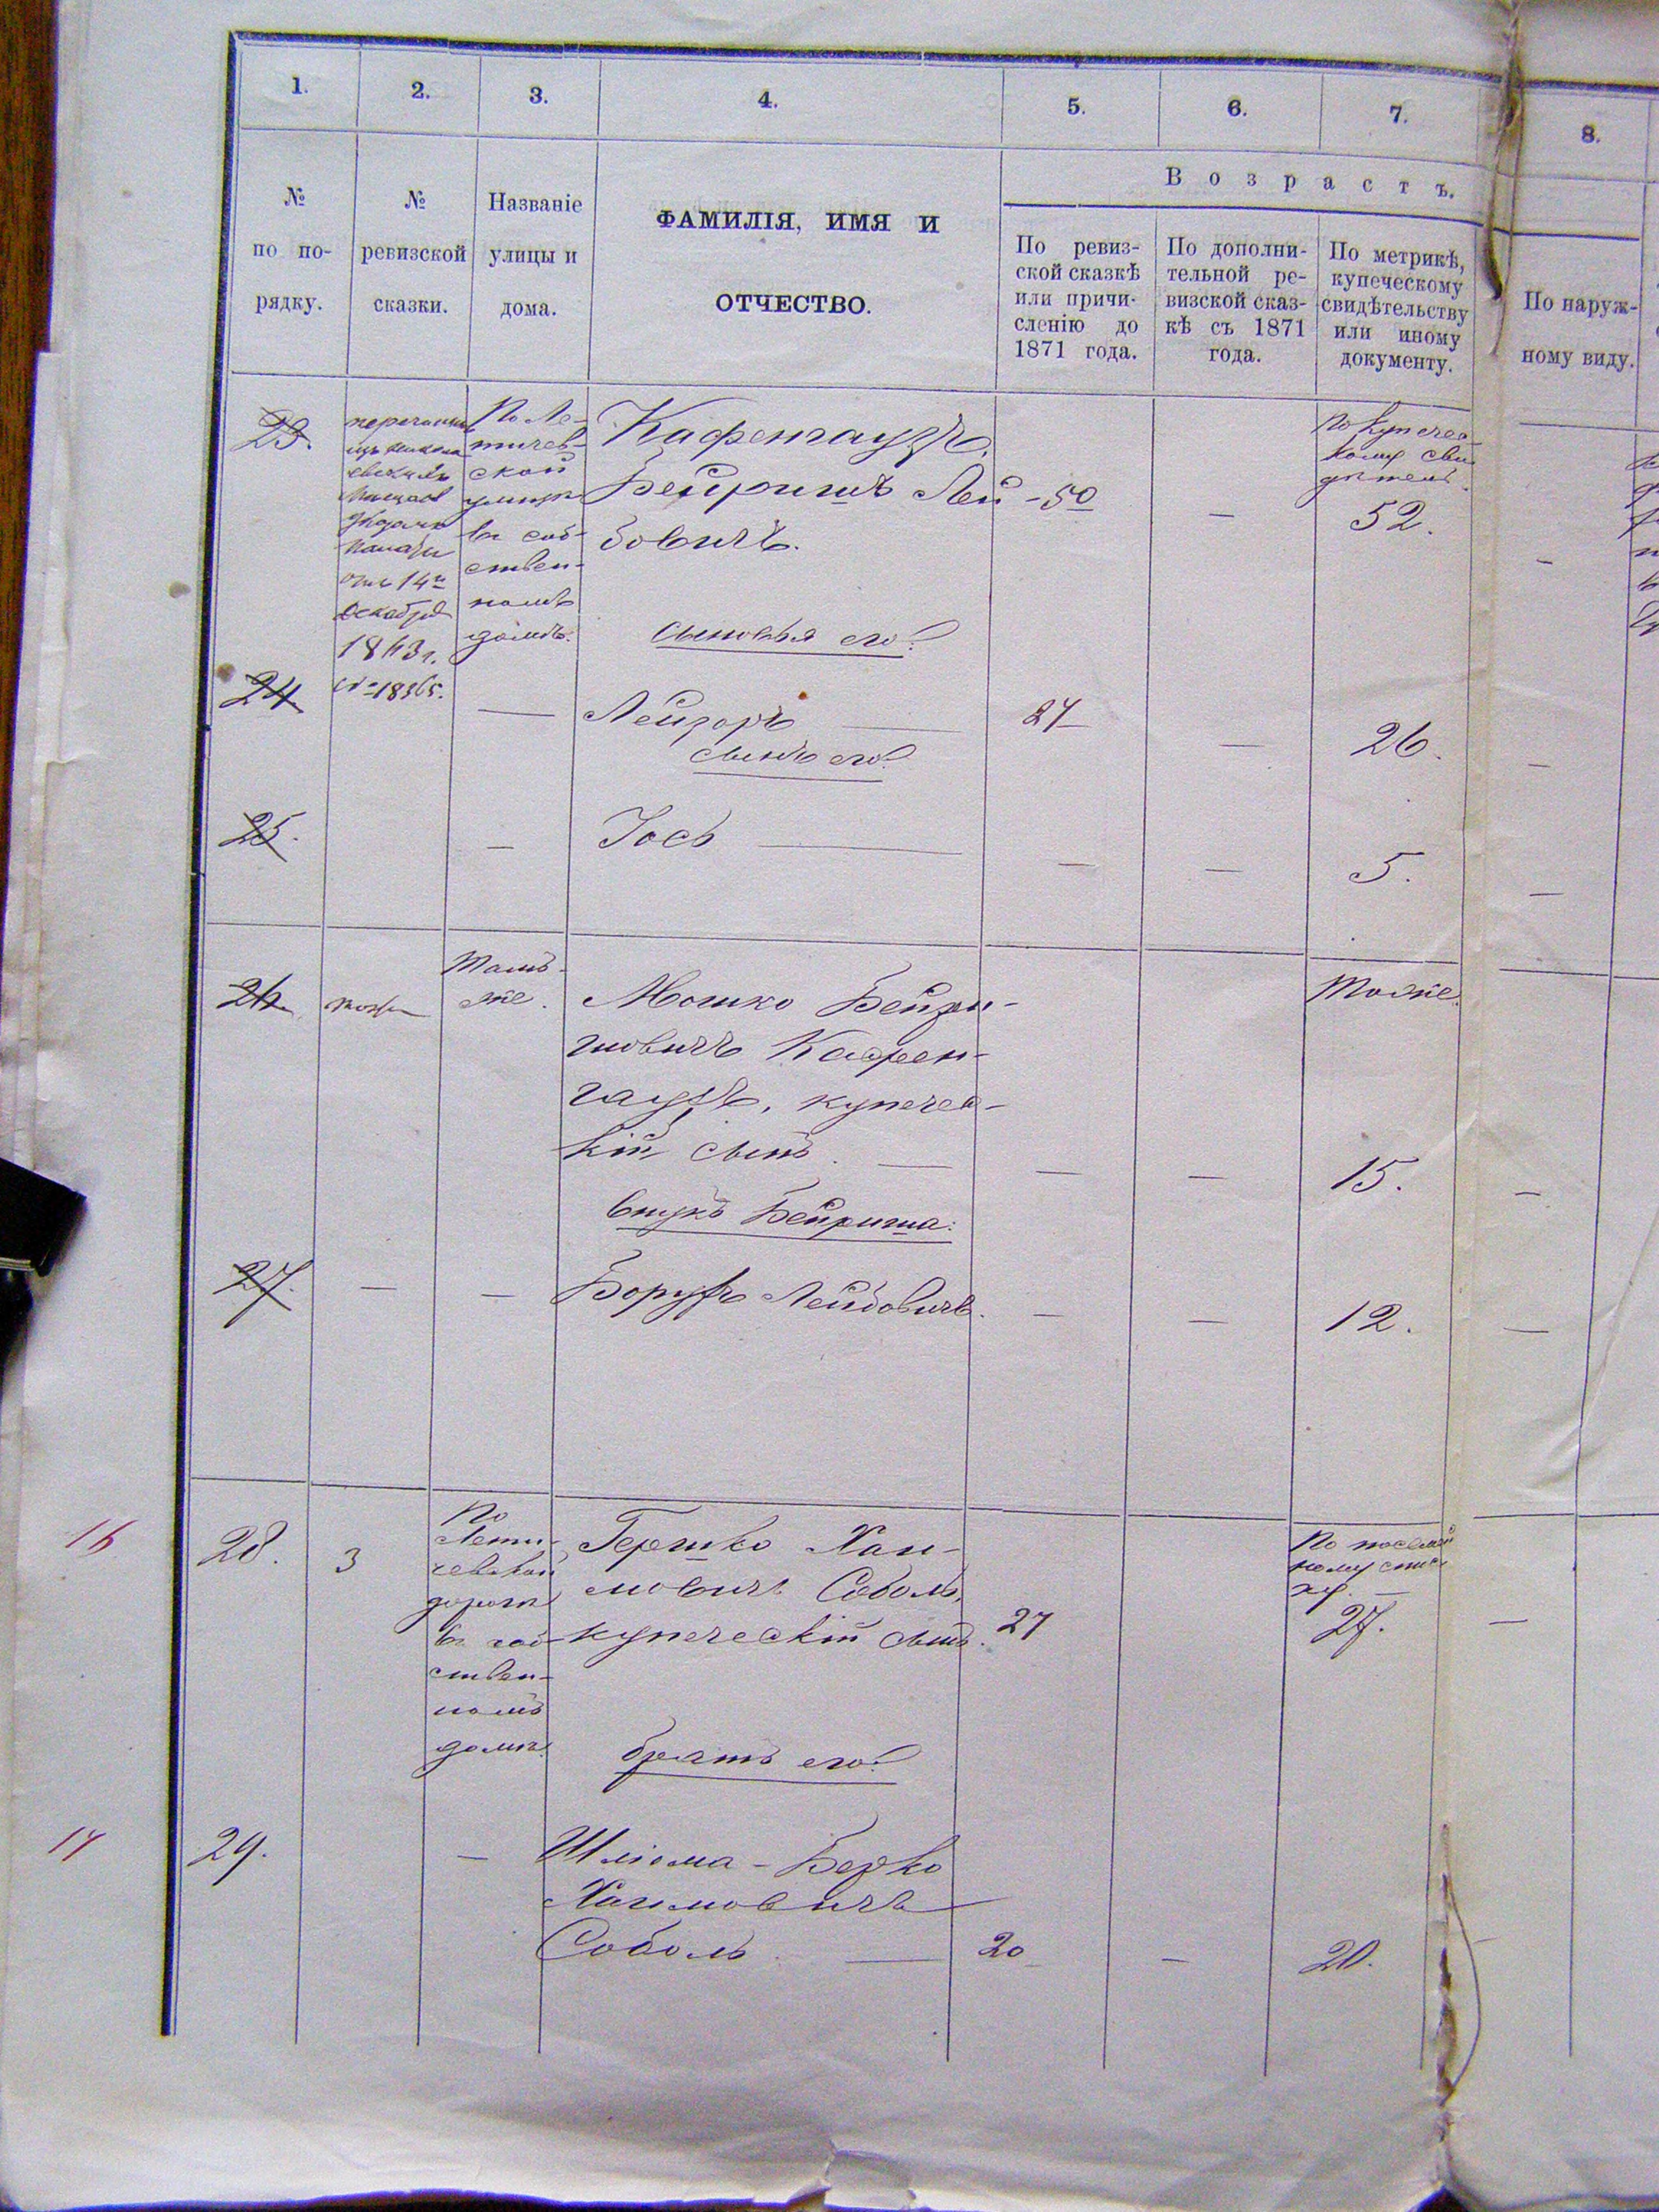 1.
2.
3.
4.
5.
6.
7.
8.
№
по по-
рядку.
№
ревизской
сказки.
Названіе
улицы и
дома.
ФАМИЛІЯ, ИМЯ И
ОТЧЕСТВО.
Возрастъ.
По ревиз-
ской сказкѣ
или причи-
сленію до
1871 года.
По дополни-
тельной ре-
визской сказ-
кѣ съ 1871
года.
По метрикѣ,
купеческому
свидѣтельству
или иному
документу.
По наруж-
ному виду.
23.
отъ 14го
декабря
18 г.
№ 18365.
По Ле-
тичев-
ской
улицѣ
въ соб-
ствен-
номъ
домѣ.
Кафенгаузъ,
Бейришъ Лей-
бовичъ.
50
—
По купечес-
кому сви
дѣтель.
52.
—
сыновья его:
24
—
Лейзоръ —
27
—
26.
—
сынъ его:
25.
—
Іось —
—
—
5.
—
26
тоже
Тамъ-
же.
Мошко Бейри-
шовичъ Кафен-
гаузъ, купечес-
кій сынъ. —
—
—
Тоже.
15.
—
внукъ Бейриша:
27.
—
—
Борухъ Лейбовичъ.
—
—
12.
—
16
28.
3
По
Лети-
чевской
дорогѣ
въ соб-
ствен-
номъ
домѣ.
Гершко Хаи-
мовичъ Соболь,
купеческій сынъ.
27
По посемей
ному спис
ку —
27.
—
братъ его:
17
29.
—
Шліома-Берко
Хаимовичъ
Соболь. —
20
—
20.